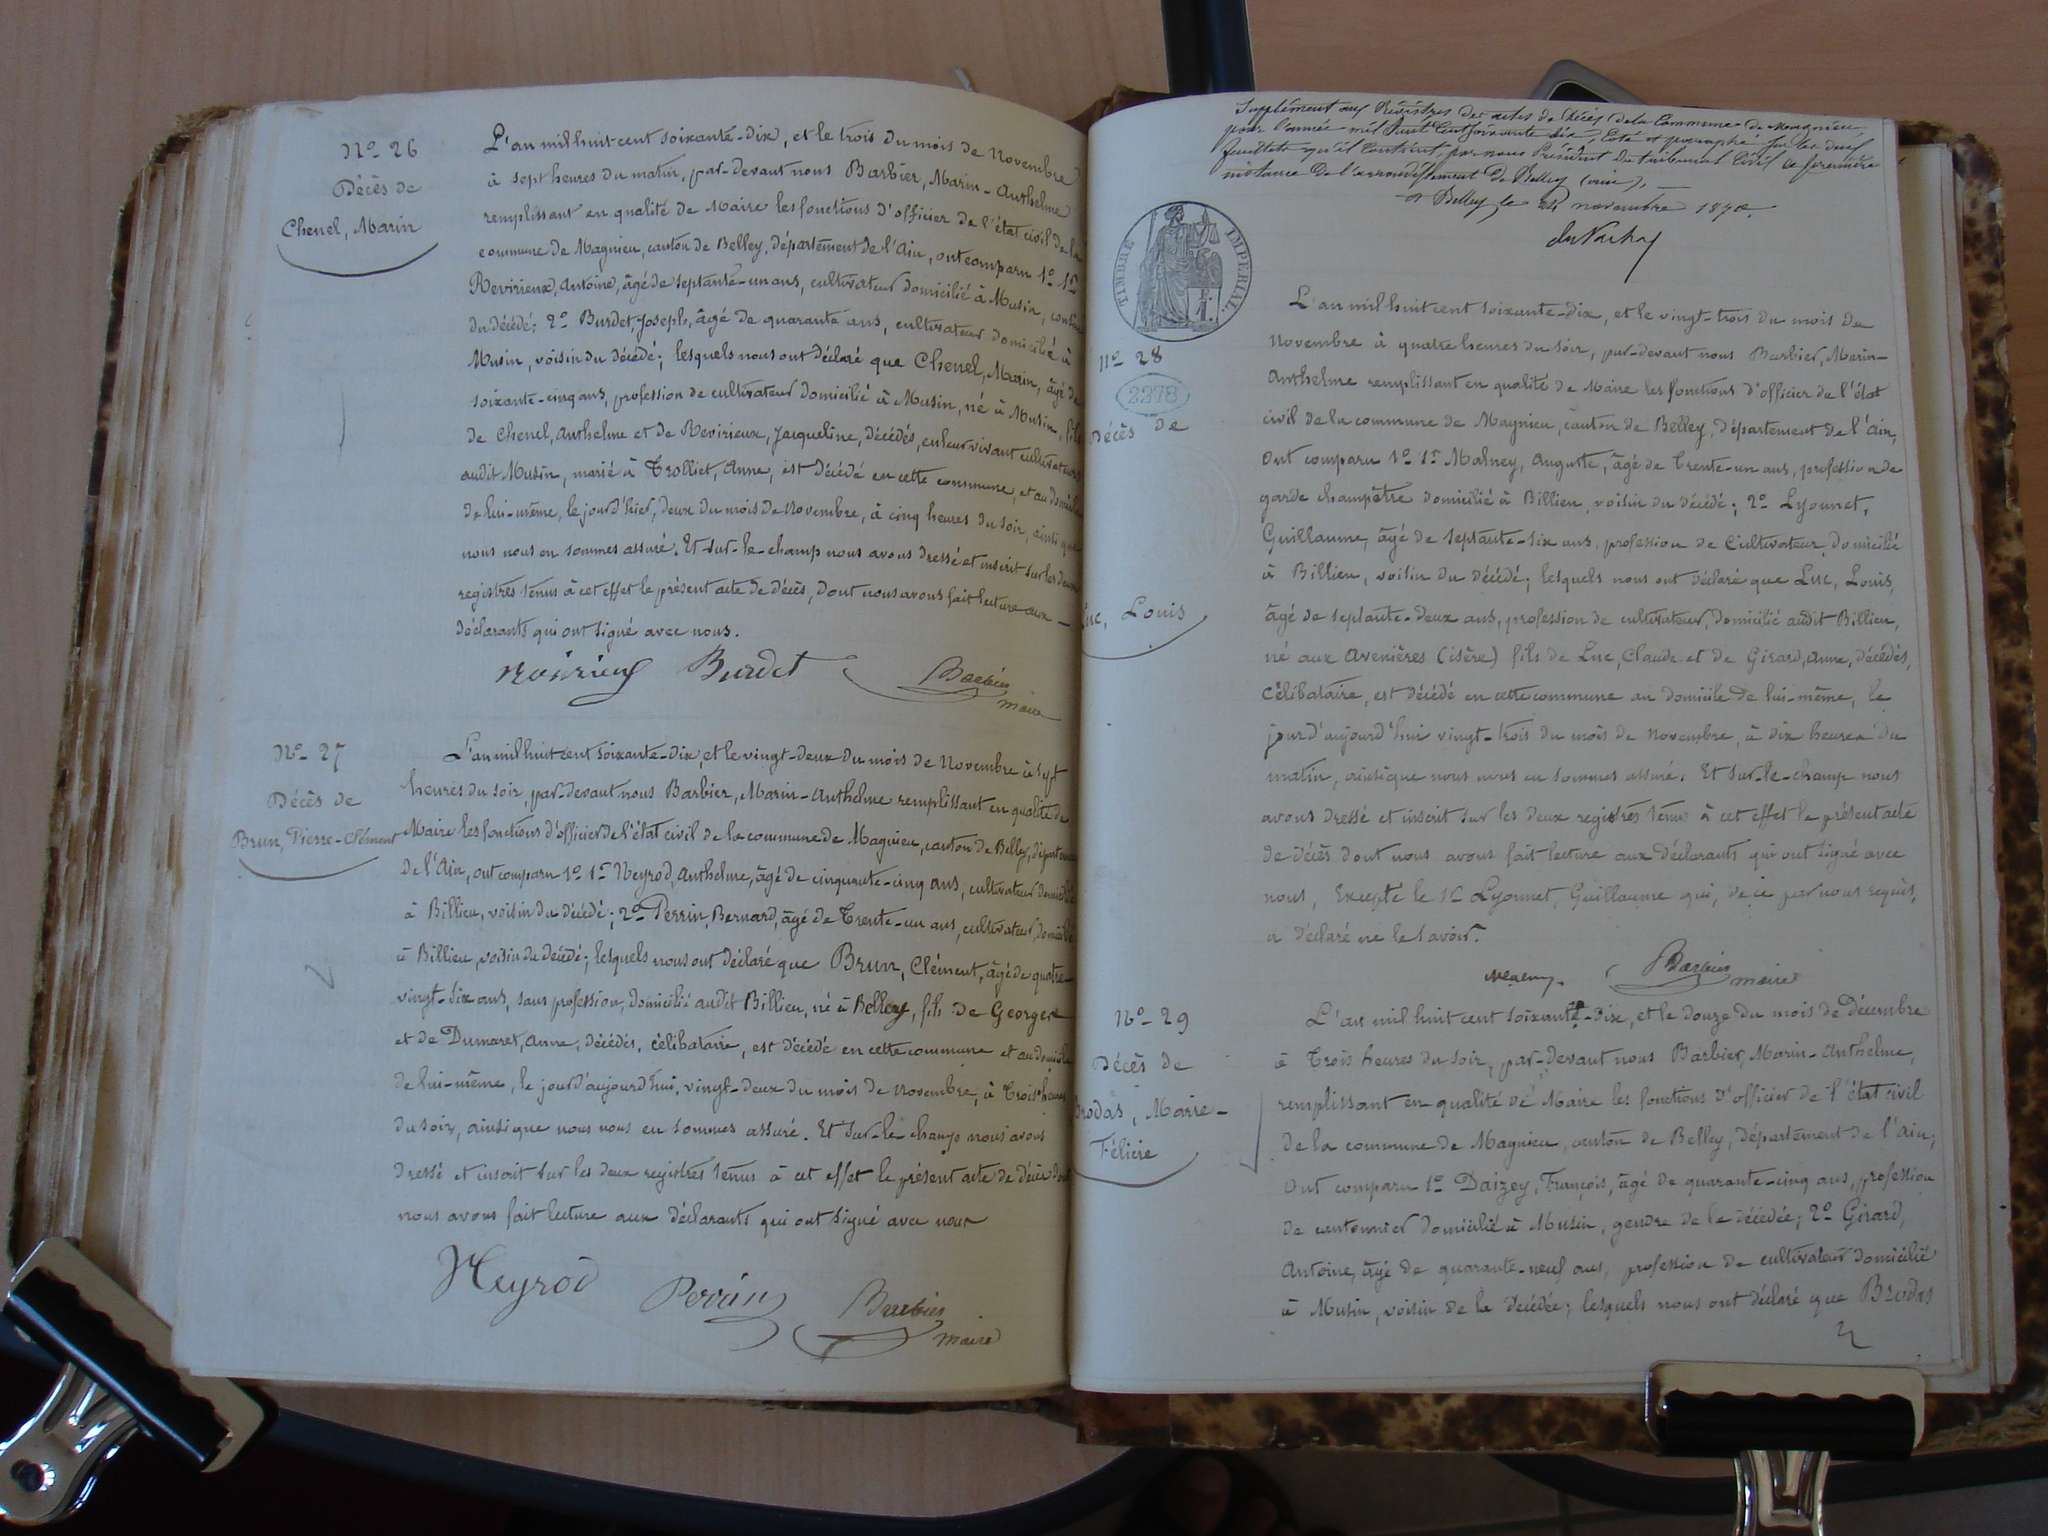 N° 26
Décès de
Chenel, Marin
L'an mil huit-cent soixante-dix, et le trois du mois de Novembre
à sept heures du matin, par-devant nous Barbier, Marin-Anthelme
remplissant en qualité de Maire les fonctions d'officier de l'état civil de la
commune de Magnieu, canton de Belley, département de l'Ain, ont comparu 1° Sr
Revirieux, Antoine, âgé de septante-un ans, cultivateur domicilié à Musin,
du décédé; 2° Burdet, Joseph, âgé de quarante ans, cultivateur domicilié à
Musin, voisin du décédé; lesquels nous ont déclaré que Chenel, Marin, âgé de
soixante-cinq ans, profession de cultivateur domicilié à Musin, né à Musin, fils
de Chenel, Anthelme et de Revirieux, Jacqueline, décédés, en leur vivant cultivateurs
audit Musin, marié à Trolliet, Anne, est décédé en cette commune, et au domicile
de lui-même, le jour d'hier, deux du mois de Novembre, à cinq heures du soir, ainsi que
nous nous en sommes assuré. Et sur-le-champ nous avons dressé et inscrit sur les deux
registres tenus à cet effet le présent acte de décès, dont nous avons fait lecture aux
déclarants qui ont signé avec nous.
Burdet Barbier
maire
N° 27
Décès de
Brun, Pierre-Clément
L'an mil huit-cent soixante-dix, et le vingt-deux du mois de Novembre à sept
heures du soir, par-devant nous Barbier, Marin-Anthelme remplissant en qualité de
Maire les fonctions d'officier de l'état civil de la commune de Magnieu, canton de Belley, département
de l'Ain, ont comparu 1° Sr Neyrod, Anthelme, âgé de cinquante-cinq ans, cultivateur domicilié
à Billieu, voisin du décédé; 2° Perrin, Bernard, âgé de trente-un ans, cultivateur, domicilié
à Billieu, voisin du décédé; lesquels nous ont déclaré que Brun, Clément, âgé de quatre-
vingt-six ans, sans profession, domicilié audit Billieu, né à Belley, fils de George
et de Dumaret, Anne, décédés, célibataire, est décédé en cette commune et au domicile
de lui-même, le jour d'aujourd'hui, vingt-deux du mois de Novembre, à trois heures
du soir, ainsi que nous nous en sommes assuré. Et sur-le-champ nous avons
dressé et inscrit sur les deux registres tenus à cet effet le présent acte de décès dont
nous avons fait lecture aux déclarants qui ont signé avec nous
Neyrod Perrin Barbier
maire
Supplément aux Registres des actes de Décès de la Commune de Magnieu
pour l'année mil huit cent soixante dix, coté et paraphé sur les deux
feuillets qu'il contient, par nous Président du tribunal civil de première
instance de l'arrondissement de Belley (Ain).
à Belley le 24 novembre 1870.
TIMBRE IMPERIAL
N° 28
2278
Décès de
Luc, Louis
L'an mil huit cent soixante-dix, et le vingt-trois du mois de
Novembre à quatre heures du soir, par-devant nous Barbier, Marin-
Anthelme remplissant en qualité de Maire les fonctions d'officier de l'état
civil de la commune de Magnieu, canton de Belley, département de l'Ain,
Ont comparu 1° Sr Malney, Auguste, âgé de trente-un ans, profession de
garde champêtre domicilié à Billieu, voisin du décédé; 2° Lyonnet,
Guillaume, âgé de septante-six ans, profession de Cultivateur domicilié
à Billieu, voisin du décédé; lesquels nous ont déclaré que Luc, Louis,
âgé de septante-deux ans, profession de cultivateur, domicilié audit Billieu,
né aux Avenières (isère) fils de Luc, Claude et de Girard, Anne, décédés,
Célibataire, est décédé en cette commune au domicile de lui-même, le
jour d'aujourd'hui vingt-trois du mois de Novembre, à dix heures du
matin, ainsi que nous nous en sommes assuré. Et sur-le-champ nous
avons dressé et inscrit sur les deux registres tenus à cet effet le présent acte
de décès dont nous avons fait lecture aux déclarants qui ont signé avec
nous, Excepté le Sr Lyonnet, Guillaume qui, de ce par nous requis,
a déclaré ne le savoir.
Barbier
maire
N° 29
Décès de
Brodas, Marie-
Félicie
L'an mil huit cent soixante-dix, et le douze du mois de décembre
à trois heures du soir, par-devant nous Barbier, Marin-Anthelme,
remplissant en qualité de Maire les fonctions d'officier de l'état civil
de la commune de Magnieu, canton de Belley, département de l'Ain;
Ont comparu 1° Daizey, François, âgé de quarante-cinq ans, profession
de cantonnier domicilié à Musin, gendre de la décédée; 2° Girard,
Antoine, âgé de quarante-neuf ans, profession de cultivateur domicilié
à Musin, voisin de la décédée; lesquels nous ont déclaré que Brodas